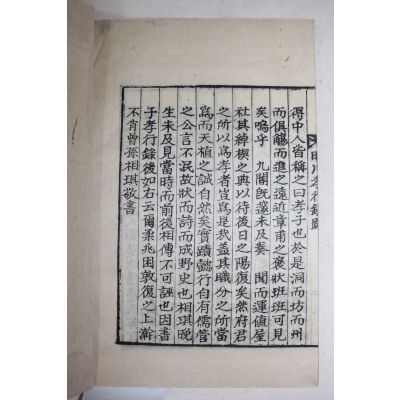 明川孝行錄
得中人皆稱之曰孝子也於是洞而坊而州
而俱觴而進之遠近章甫之褒狀班班可見
矣嗚乎 九閽旣邃未及奏 聞而運値屋
社其綽楔之典以待後日之陽復矣然府君
之所以爲孝者豈爲是哉盖其職分之所當
爲而天植之誠自然矣實蹟懿行自有儒管
之公言不泯故狀而詩而成野史也相琪晚
生未及見當時而前後相傳不可誣也因書
子孝行錄後如右云爾柔兆困敦復之上澣
不肖曾孫相琪敬書